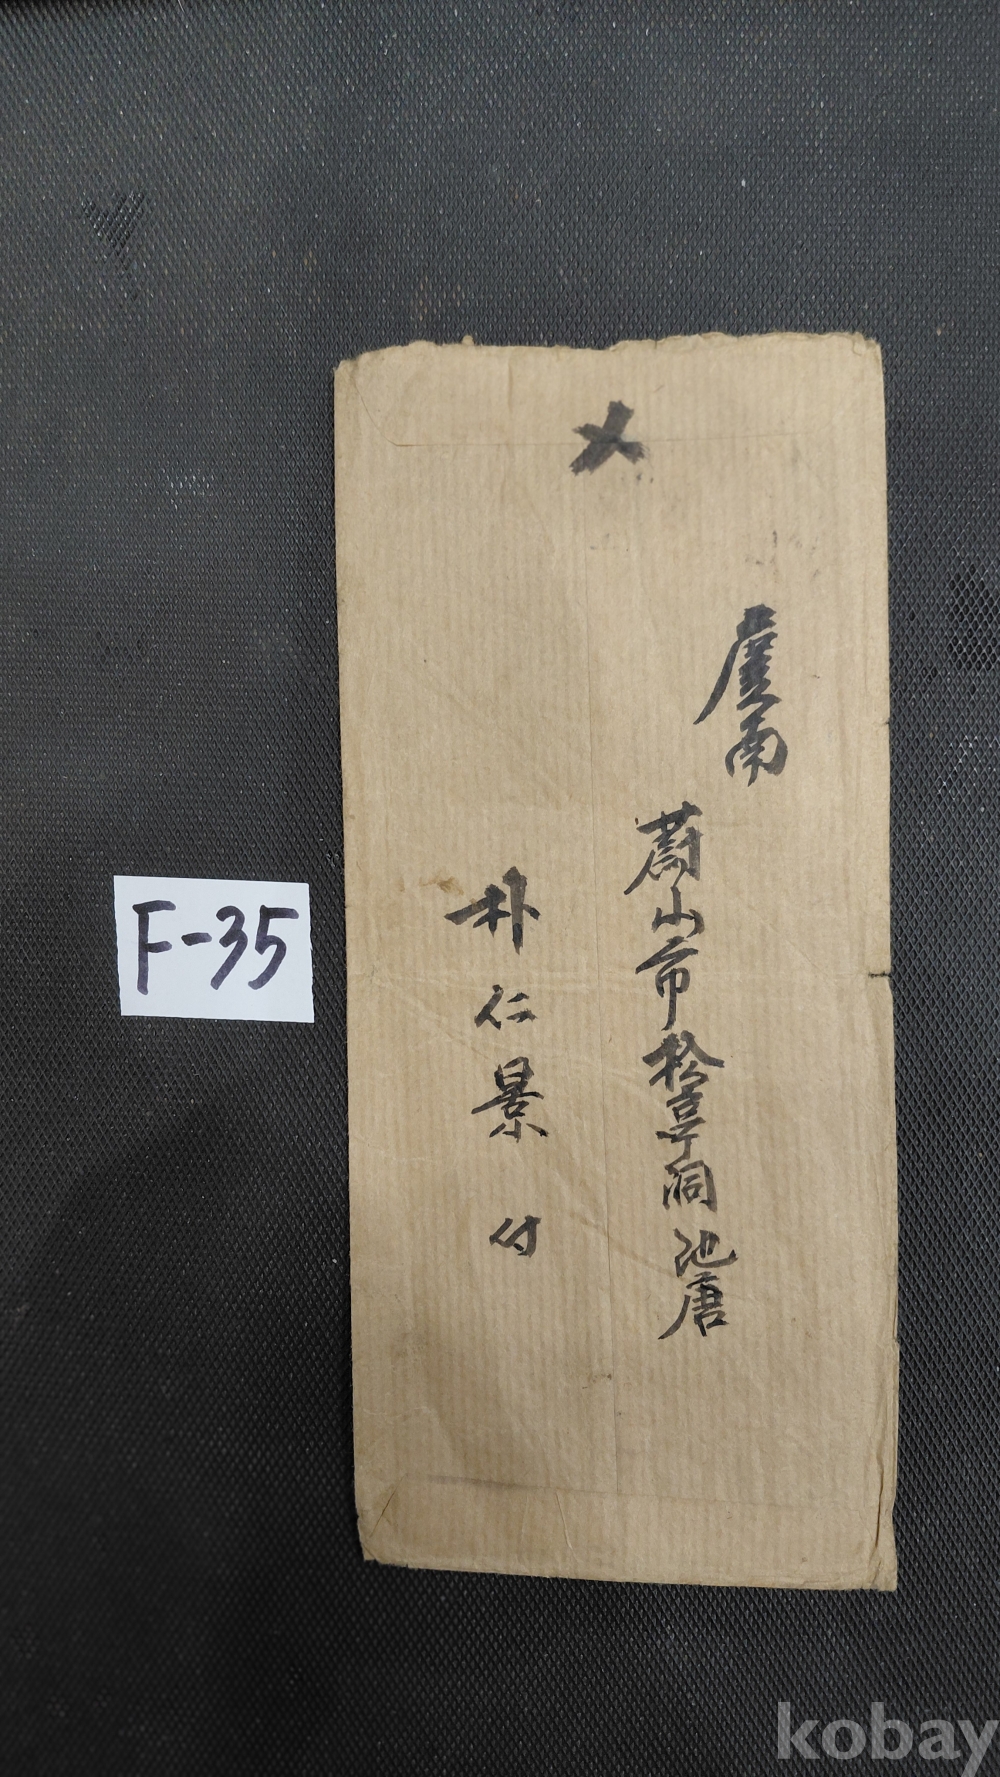 慶南
蔚山市松亭洞池唐
朴仁景 付
F-35
kobay